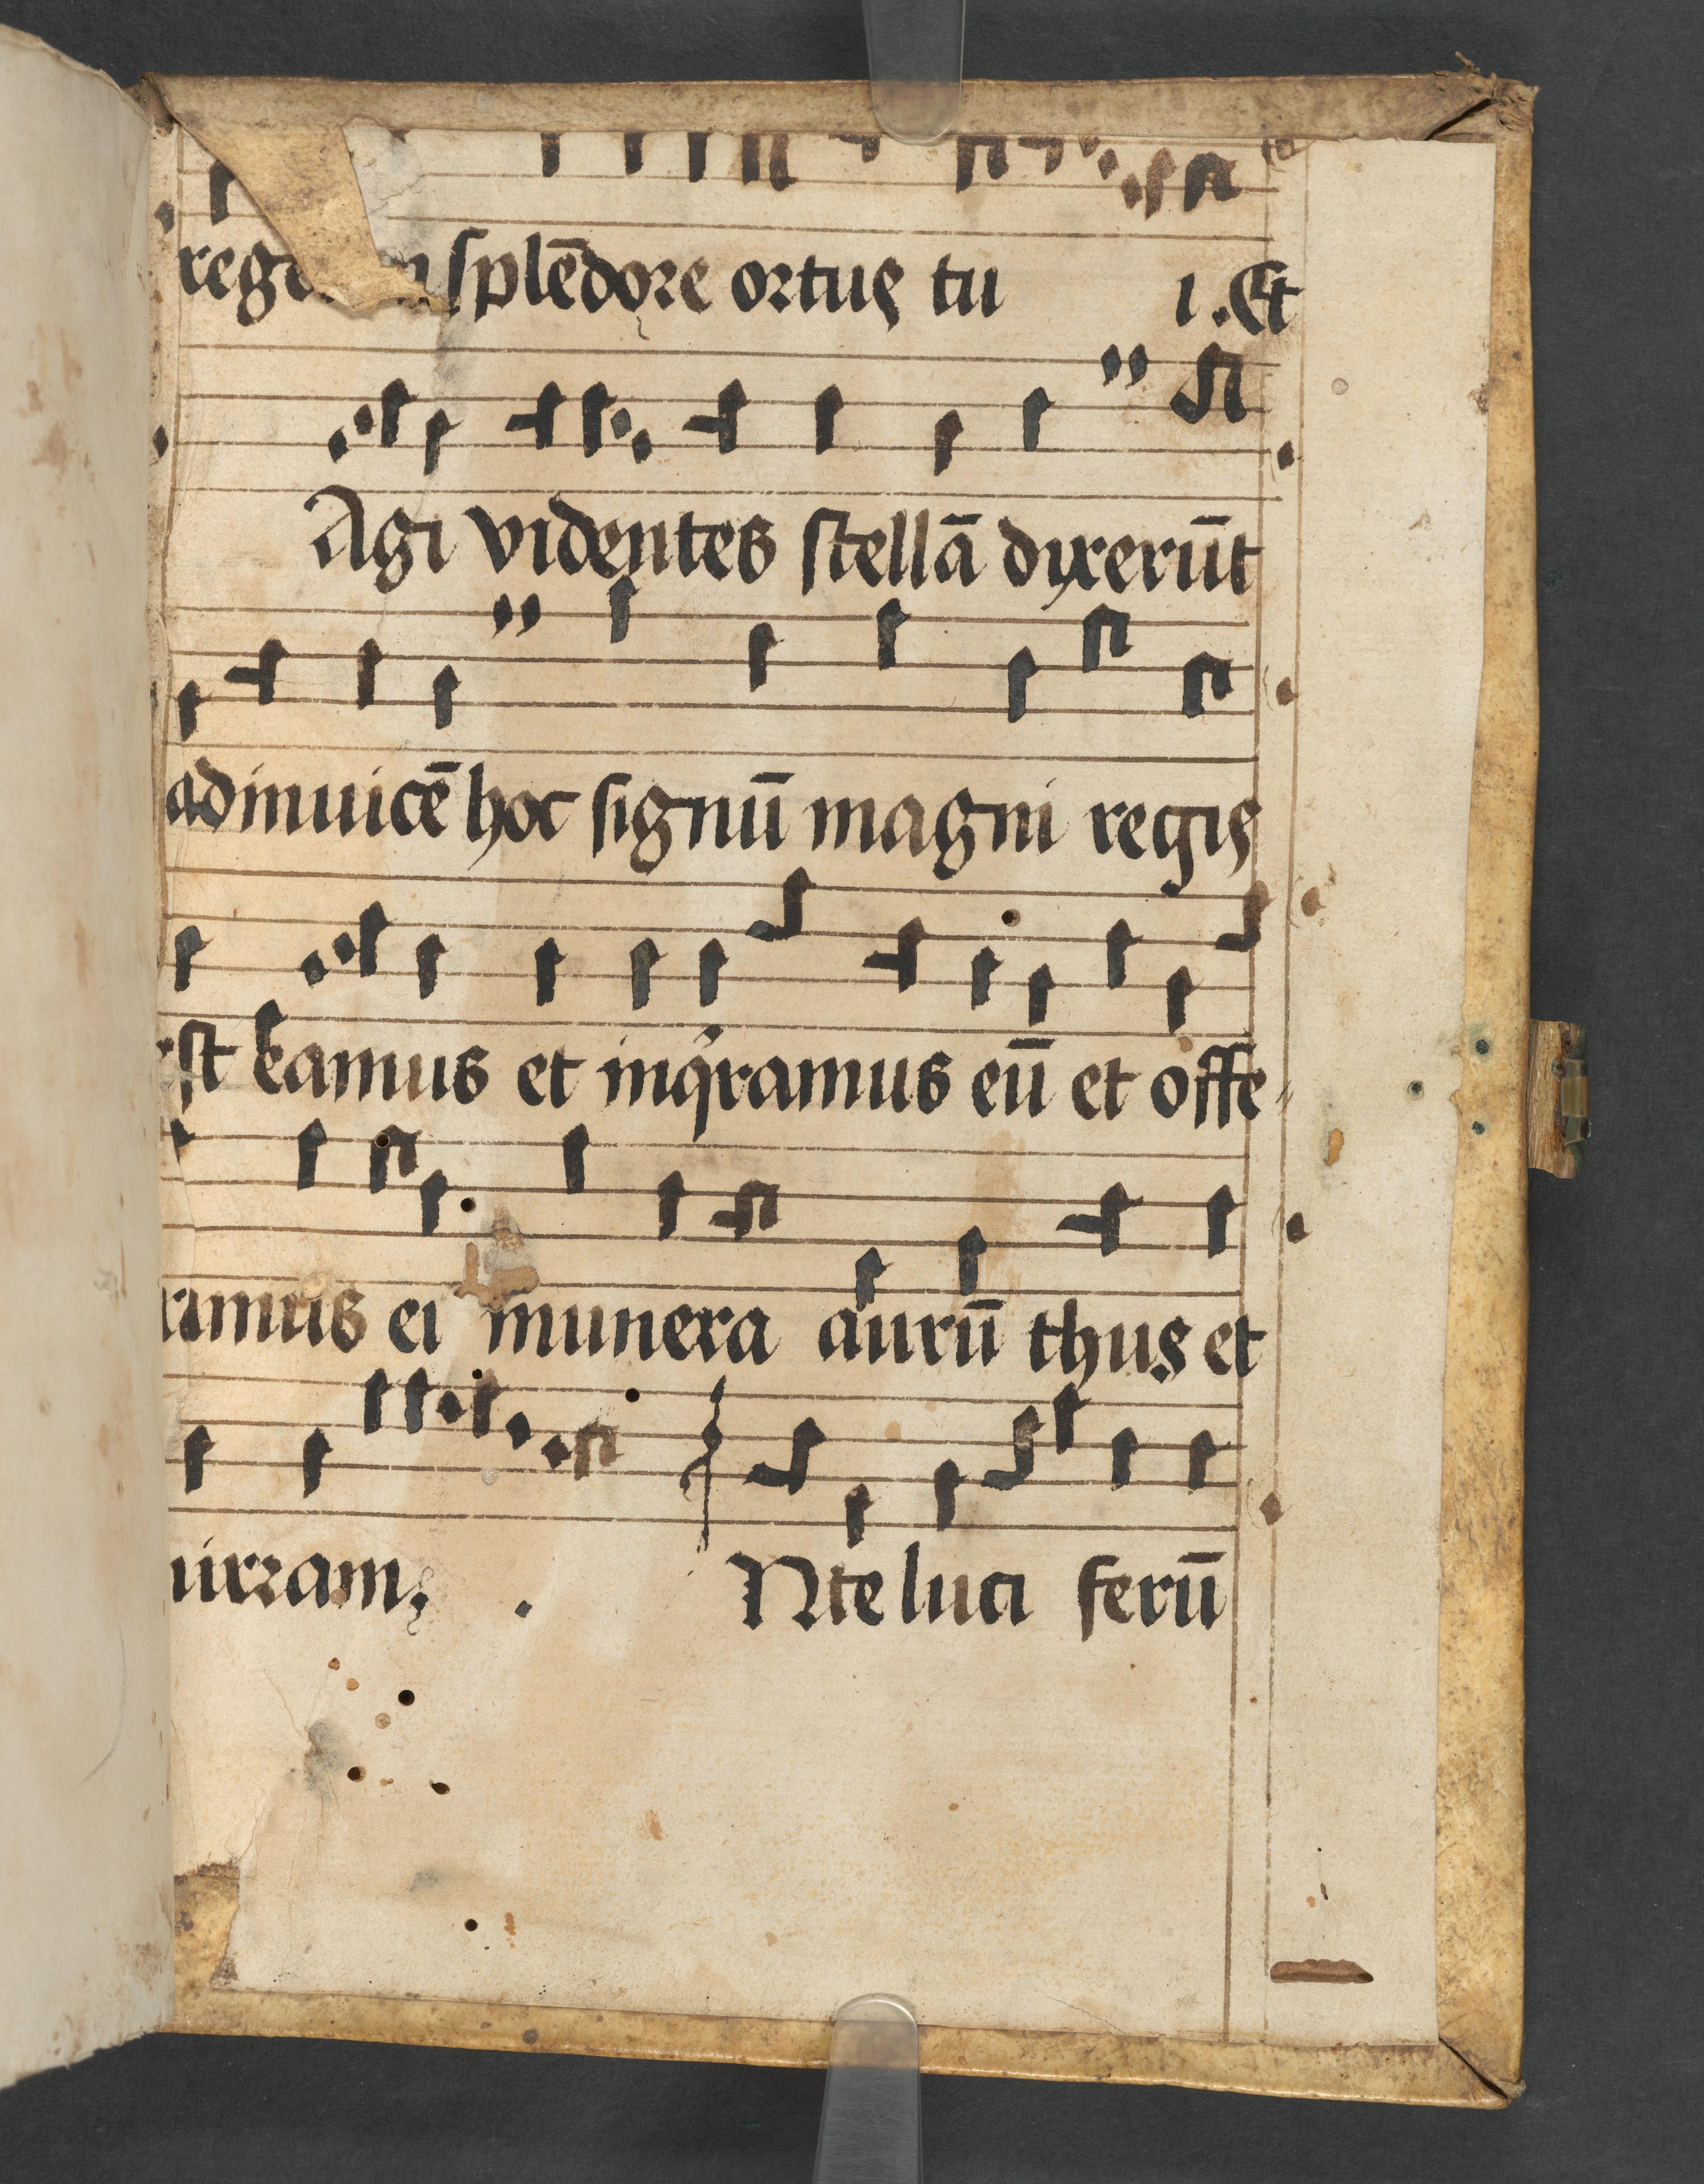 splēdore ortus tu i . Et
Agi videntes stellā dixerūt
adinuicē hoc signū magni regis
st Eamus et inqͥramus eū et offe
ramus ei munera aurū thus et
irram
Nte luci ferū